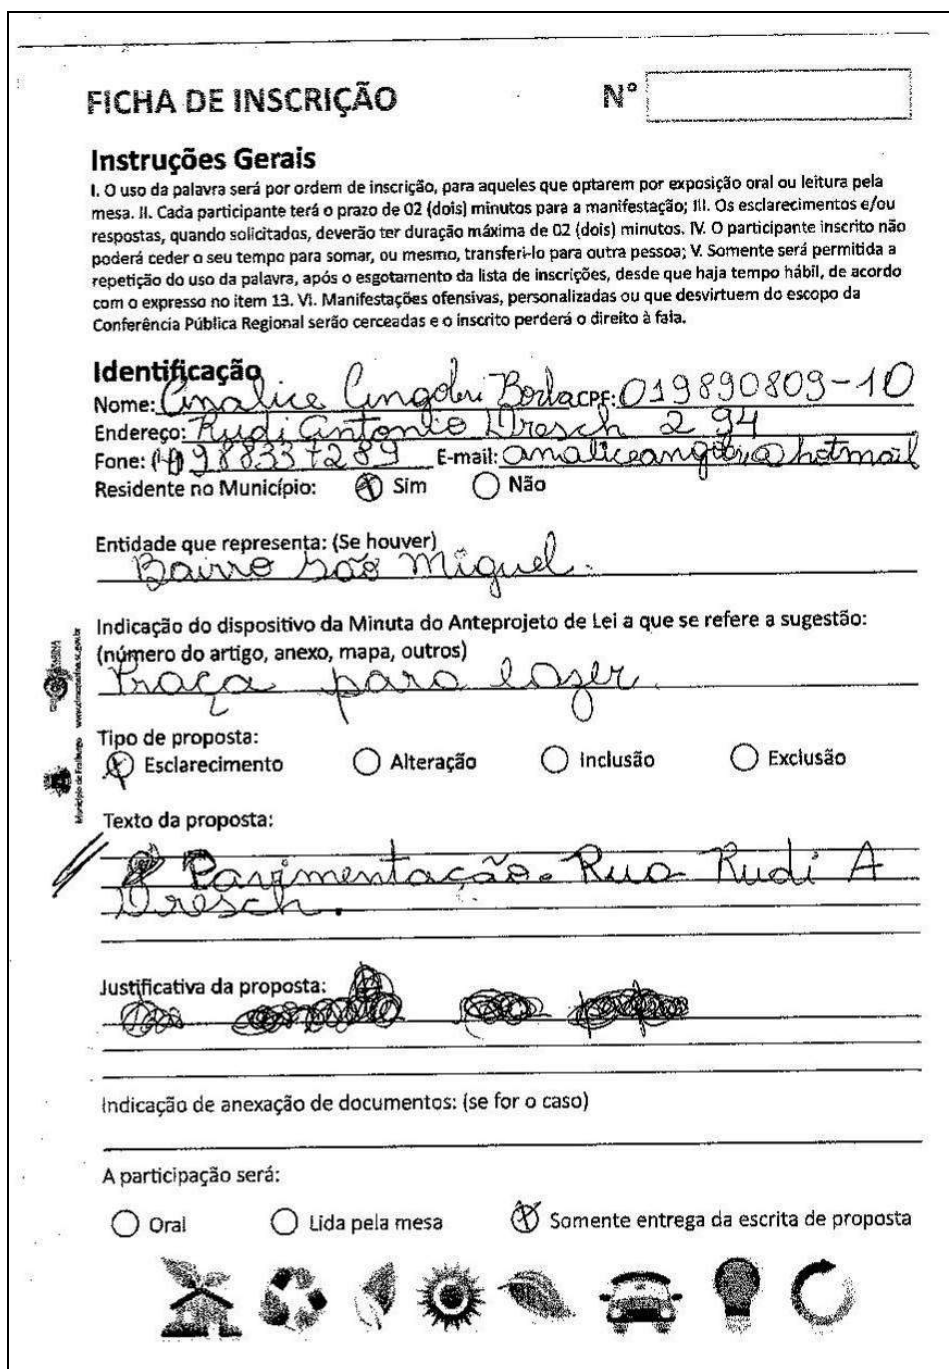 FICHA DE INSCRIÇÃO Nº
Instruções Gerais
I. O uso da palavra será por ordem de inscrição, para aqueles que optarem por exposição oral ou leitura pela
mesa. II. Cada participante terá o prazo de 02 (dois) minutos para a manifestação; III. Os esclarecimentos e/ou
respostas, quando solicitados, deverão ter duração máxima de 02 (dois) minutos. IV. O participante inscrito não
poderá ceder o seu tempo para somar, ou mesmo, transferi-lo para outra pessoa; V. Somente será permitida a
repetição do uso da palavra, após o esgotamento da lista de inscrições, desde que haja tempo hábil, de acordo
com o expresso no item 13. VI. Manifestações ofensivas, personalizadas ou que desvirtuem do escopo da
Conferência Pública Regional serão cerceadas e o inscrito perderá o direito à fala.
Identificação
Nome: Analice Angoleri CPF: 019890809-10
Endereço: Rudi Antonio Dresch 294
Fone: 988337289 E-mail: @hotmail
Residente no Município: Sim Não
Entidade que representa: (Se houver)
Bairro São Miguel.
Indicação do dispositivo da Minuta do Anteprojeto de Lei a que se refere a sugestão:
(número do artigo, anexo, mapa, outros)
Praça para lazer
Tipo de proposta:
Esclarecimento Alteração Inclusão Exclusão
Município de Fraiburgo
Texto da proposta:
Pavimentação. Rua Rudi A
Dresch.
Justificativa da proposta:
Indicação de anexação de documentos: (se for o caso)
A participação será:
Oral Lida pela mesa Somente entrega da escrita de proposta